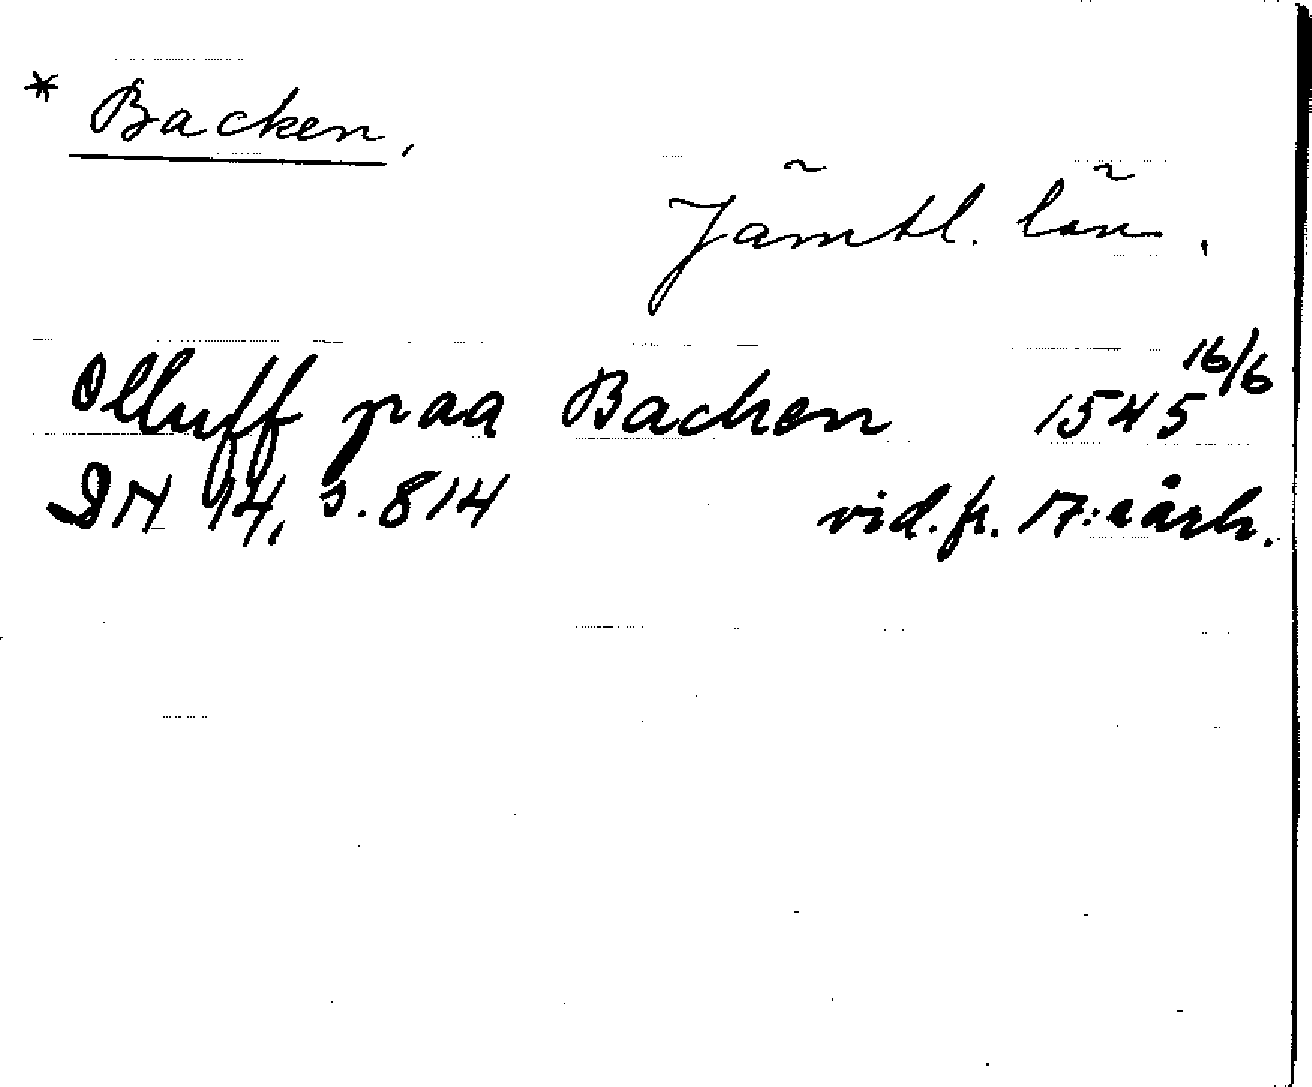 * Backen,
Jämtl. län.
Olluff paa Backen 1545 16/6
DN 14, s. 814 vid. fr. 17:e årh.